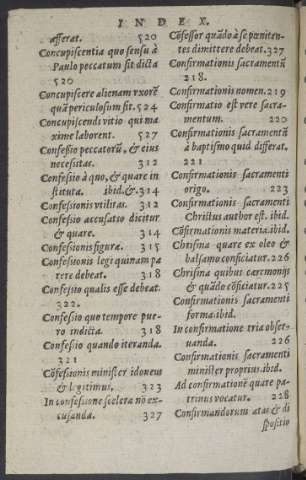 INDEX.
afferat. 520
Concupiscentia quo sensu à
Paulo peccatum sit dicta
520
Concupiscere alienam vxorē
quā periculosum sit. 524
Concupiscendi vitio qui ma
xime laborent. 527
Confessio peccatorū, & eius
necessitas. 312
Confessio à quo, & quare in
stituta. ibid.&.314
Confessionis vtilitas. 312
Confessio accusatio dicitur
& quare. 314
Confessionis figura. 315
Confessionis legi quinam pa
rere debeat. 318
Confessio qualis esse debeat.
322.
Confessio quo tempore pue-
ro indicta. 318
Confessio quando iteranda.
321
Cōfessionis minister idoneus
& legitimus. 323
In confessione scelera nō ex-
cusanda. 327
Cōfessor quādo à se pœniten-
tes dimittere debeat. 327
Confirmationis sacramentū
218.
Confirmationis nomen. 219
Confirmatio est vere sacra-
mentum. 220
Confirmationis sacramentū
à baptismo quid differat.
221
Confirmationis sacramenti
origo. 223
Confirmationis sacramenti
Christus author est. ibid.
Cōfirmationis materia. ibid.
Chrisma quare ex oleo &
balsamo conficiatur. 226
Chrisma quibus cæremonijs
& quādo cōficiatur. 225
Confirmationis sacramenti
forma. ibid.
In confirmatione tria obser-
uanda. 226
Confirmationis sacramenti
minister proprius. ibid.
Ad confirmationē quare pa-
trinus vocatur. 228
Confirmandorum ætas & di
spositio